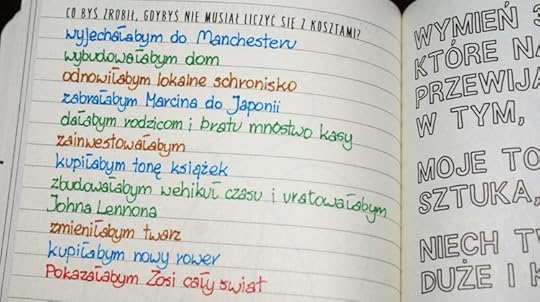 CO BYŚ ZROBIŁ, GDYBYŚ NIE MUSIAŁ LICZYĆ SIĘ Z KOSZTAMI?
wyjechałabym do Manchesteru
wybudowałabym dom
odnowiłabym lokalne schronisko
zabrałabym Marcina do Japonii
dałabym rodzicom i bratu mnóstwo kasy
zainwestowałabym
kupiłabym tonę książek
zbudowałabym wehikuł czasu i uratowałabym
Johna Lennona
zmieniłabym twarz
kupiłabym nowy rower
Pokazałabym Zosi cały świat
WYMIEŃ 3
KTÓRE NA
PRZEWIJA
W TYM,
MOJE TO
SZTUKA,
NIECH TW
DUŻE I K